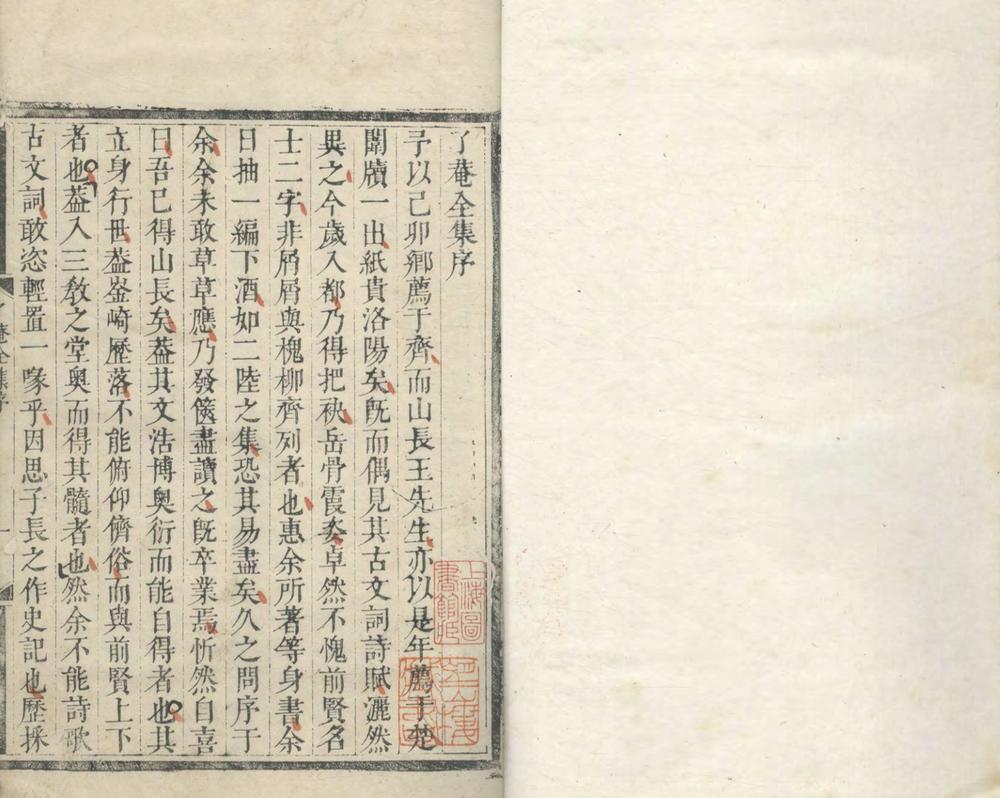 了菴全集序
予以己卯鄉薦于齊而山長王先生亦以是年薦于楚
闈牘一出紙貴洛陽矣旣而偶見其古文詞詩賦灑然
異之今歲入都乃得把袂岳骨霞姿卓然不愧前賢名
士二字非屑屑與槐柳齊列者也惠余所著等身書余
日抽一編下酒如二陸之集恐其易盡矣久之問序于
余余未敢草草應乃發篋盡讀之旣卒業焉忻然自喜
曰吾已得山長矣葢其文浩博奧衍而能自得者也其
立身行世葢崟崎歷落不能俯仰儕俗而與前賢上下
者也葢入三敎之堂奧而得其髓者也然余不能詩歌
古文詞敢恣輕置一喙乎因思子長之作史記也歷採
了菴全集序
一
上海圖書館藏